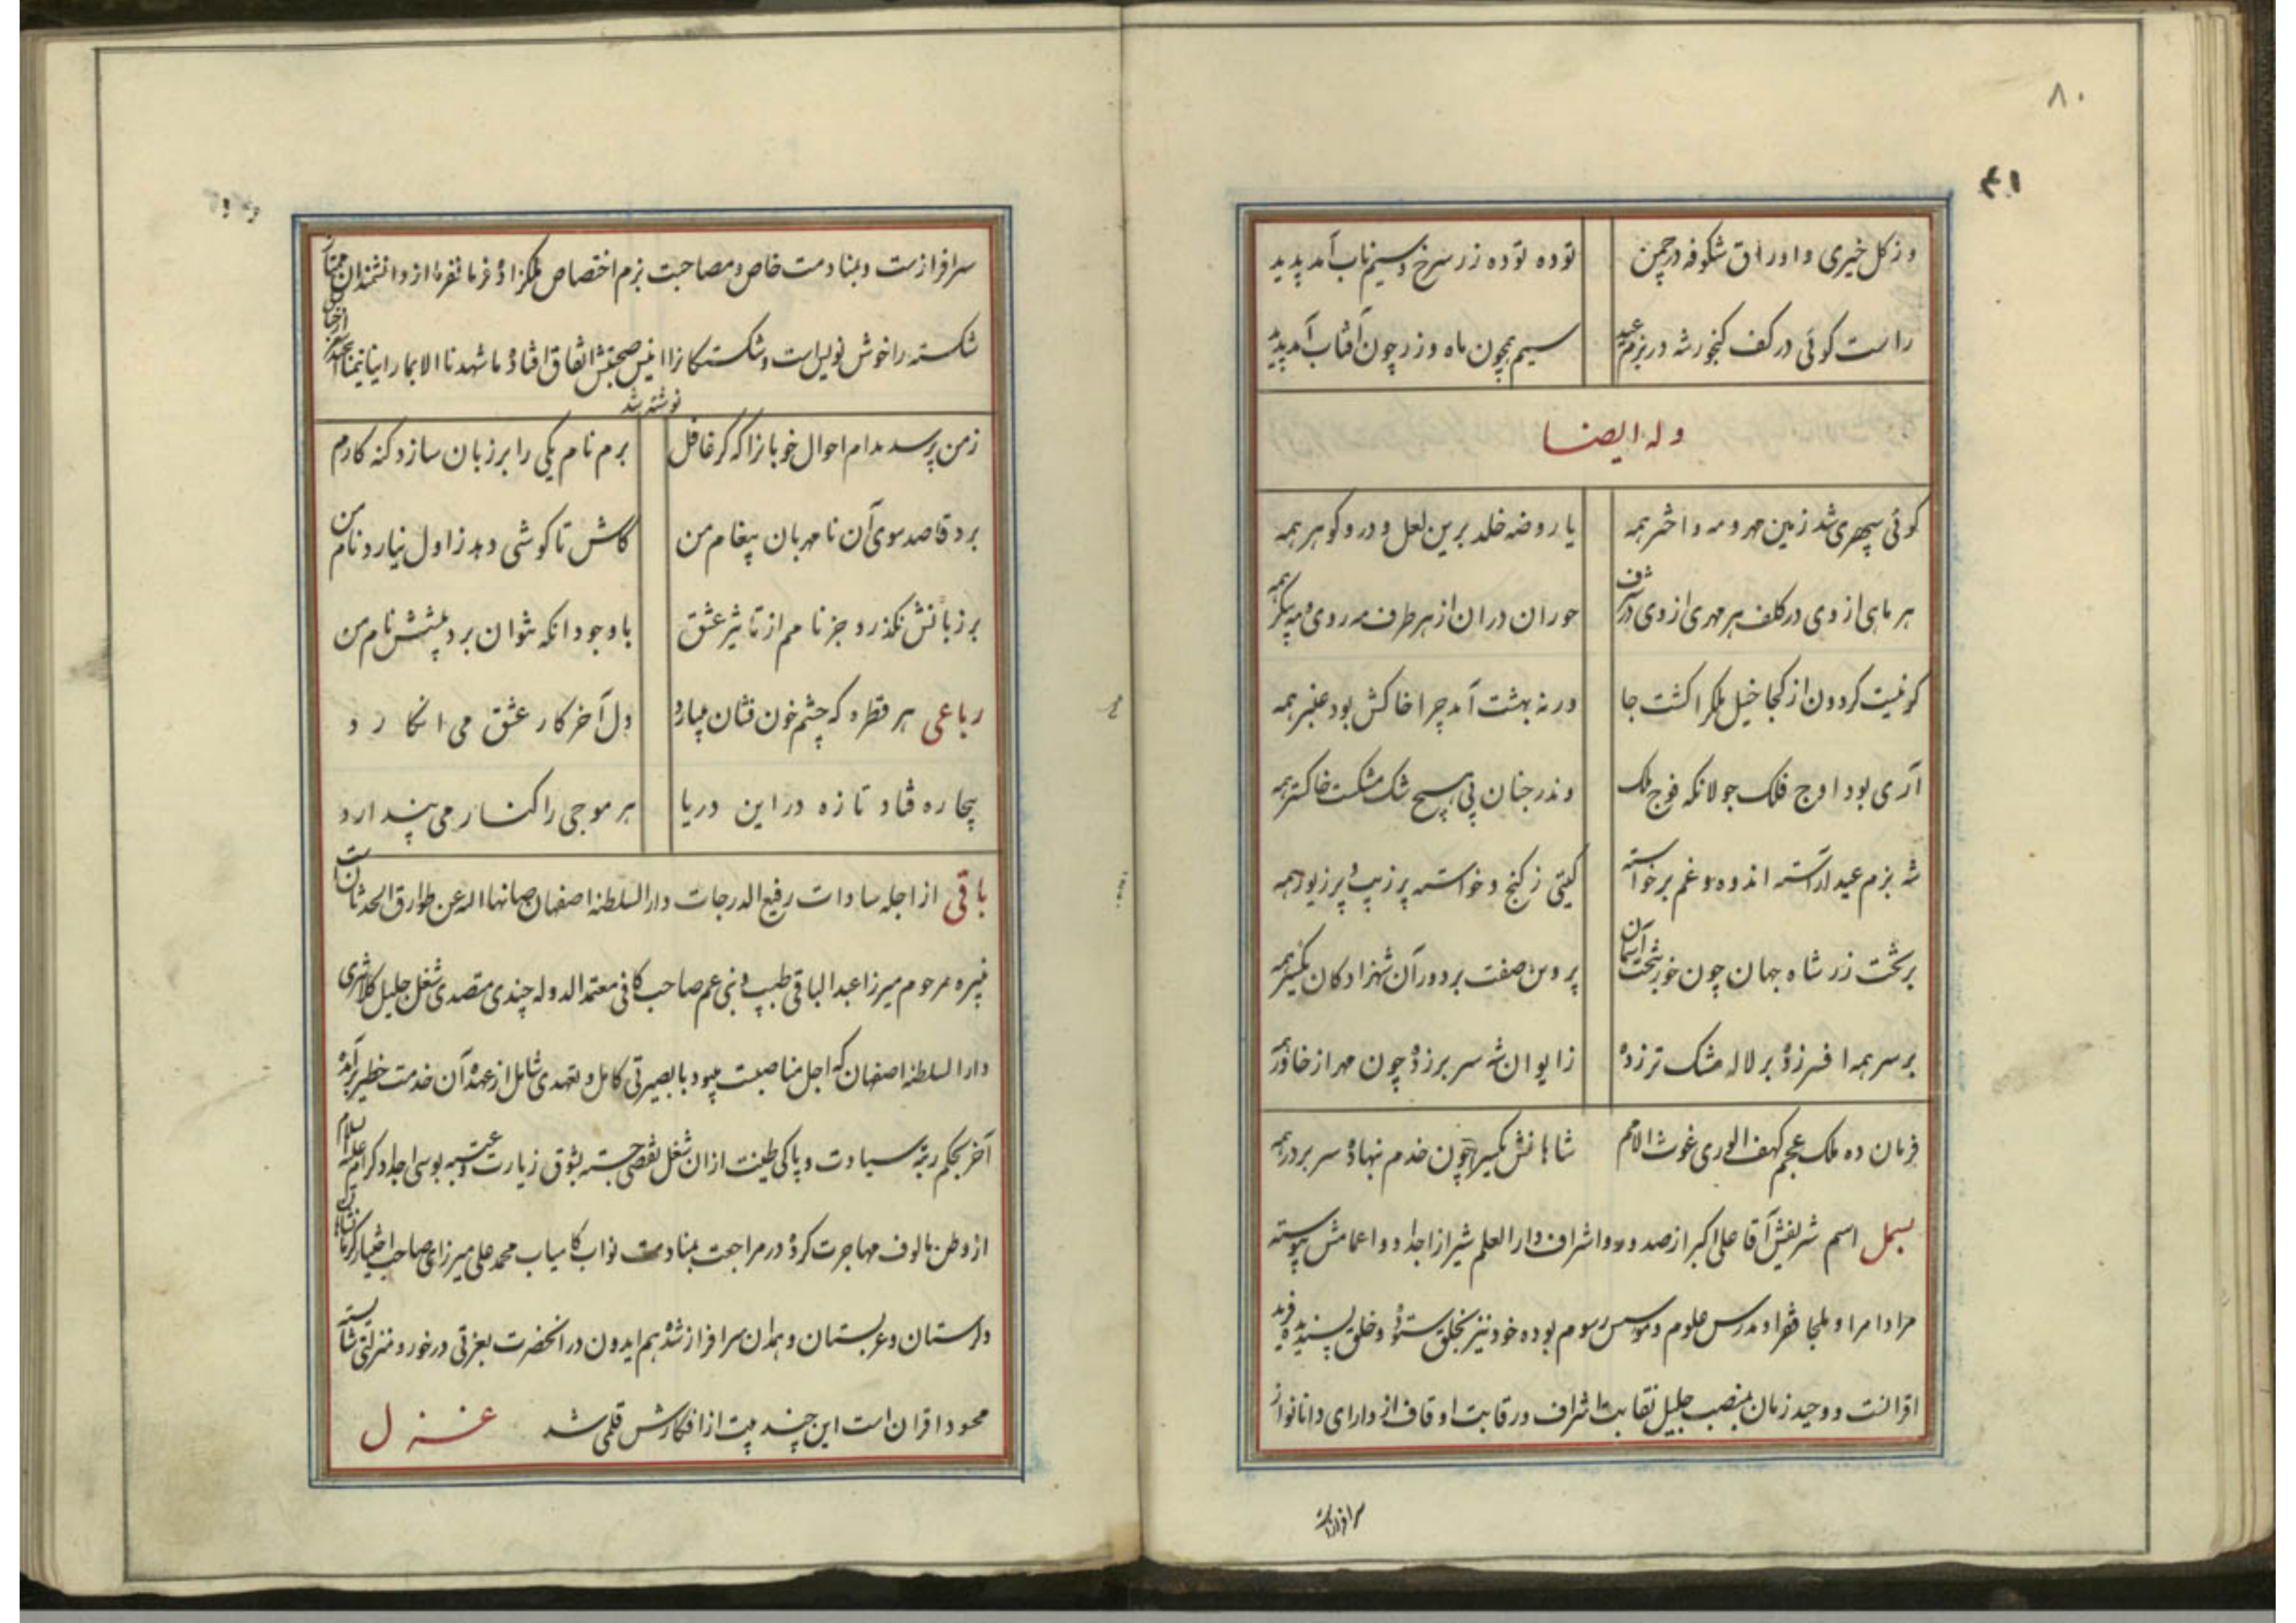 ۸۰
وز کل خیری و اوراق شکوفه در چمن توده توده زر سرخ و سیم ناب آمد پدید
راست کوئی در کف کنجور شه در بزم عید سیم همچون ماه و زر چون آفتاب آمد پدید
وله ایضا
کوئی سپهری شد زمین مهر و مه و اختر همه یا روضه خلد برین لعل و در و کوهر همه
هر ماهی از وی در کلف هر مهری از وی در شرف حوران در ان از هر طرف مه روی و مه پیکر همه
کو نیست کردون از کجا خیل ملک را کشت جا ور نه بهشت آمد چرا خاکش بود عنبر همه
آری بود اوج فلک جولانکه فوج ملک وندر جنان بی هیچ شک مشکست خاکستر همه
شه بزم عید آراسته اندوه و غم برخواسته کیتی ز کنج و خواسته پر زیب و پر زیور همه
بر تخت زر شاه جهان چون خور بتخت آسمان پروین صفت بر دور آن شهزادکان یکسر همه
بر سر همه افسر زده بر لاله مشک تر زده ز ایوان شه سر بر زده چون مهر از خاور همه
فرمان ده ملک عجم کهف الوری غوث الامم شاهانش یکسر چون خدم نهاده سر بر در همه
بسمل اسم شریفش آقا علی اکبر از صدور و اشراف دار العلم شیراز اجداد و اعمامش پیوسته
مراد امرا و ملجا فقرا و مدرس علوم و موسس رسوم بوده خود نیز بخلق ستوده و خلق پسندیده فرید
اقرانست و وحید زمان بمنصب جلیل نقابت اشراف و رقابت اوقاف از دارای دانا نواز
سرافرازست
سرافرازست و بمنادمت خاص و مصاحبت بزم اختصاص ملکزاده فرمانفرما از دانشمندان ممتاز
شکسته را خوش نویس است و شکستکانرا انیس صحبتش اتفاق افتاده ما شهدنا الا بما راینا تیمنا از خیال
نوشته شد
ز من پرسد مدام احوال خوبانرا که کر غافل برم نام یکی را بر زبان سازد کنه کارم
برد قاصد سوی آن نا مهربان پیغام من کاش تا کوشی دهد ز اول نیارد نام من
بر زبانش نکذرد جز نامم از تاثیر عشق با وجود انکه نتوان برد پیشش نام من
رباعی هر قطره که چشم خون فشان میبارد دل آخر کار عشق می انکارد
بیچاره فتاد تازه در این دریا هر موجی را کنار می پندارد
باقی از اجله سادات رفیع الدرجات دار السلطنه اصفهان صانها اله عن طوارق الحدثان است
نبیره مرحوم میرزا عبد الباقی طبیب و بنی عم صاحب کافی معتمد الدوله چندی متصدی شغل جلیل کلانتری
دار السلطنه اصفهان که اجل مناصبست میبود با بصیرتی کامل و تعهدی شامل از عهده آن خدمت خطیر برآمده
آخر بحکم رتبه سیادت و پاکی طینت از ان شغل تفصی جسته بشوق زیارت و عتبه بوسی اجداد کرام علیه السلام
از وطن مالوف مهاجرت کرده در مراجعت بمنادمت نواب کامیاب محمد علی میرزای صاحب اختیار کرمانشاهان
و لرستان و عربستان و همدان سرافراز شده هم ایدون در انحضرت بعزتی در خور و منزلتی شایسته
محسود اقران است این چند بیت از افکارش قلمی شد غزل